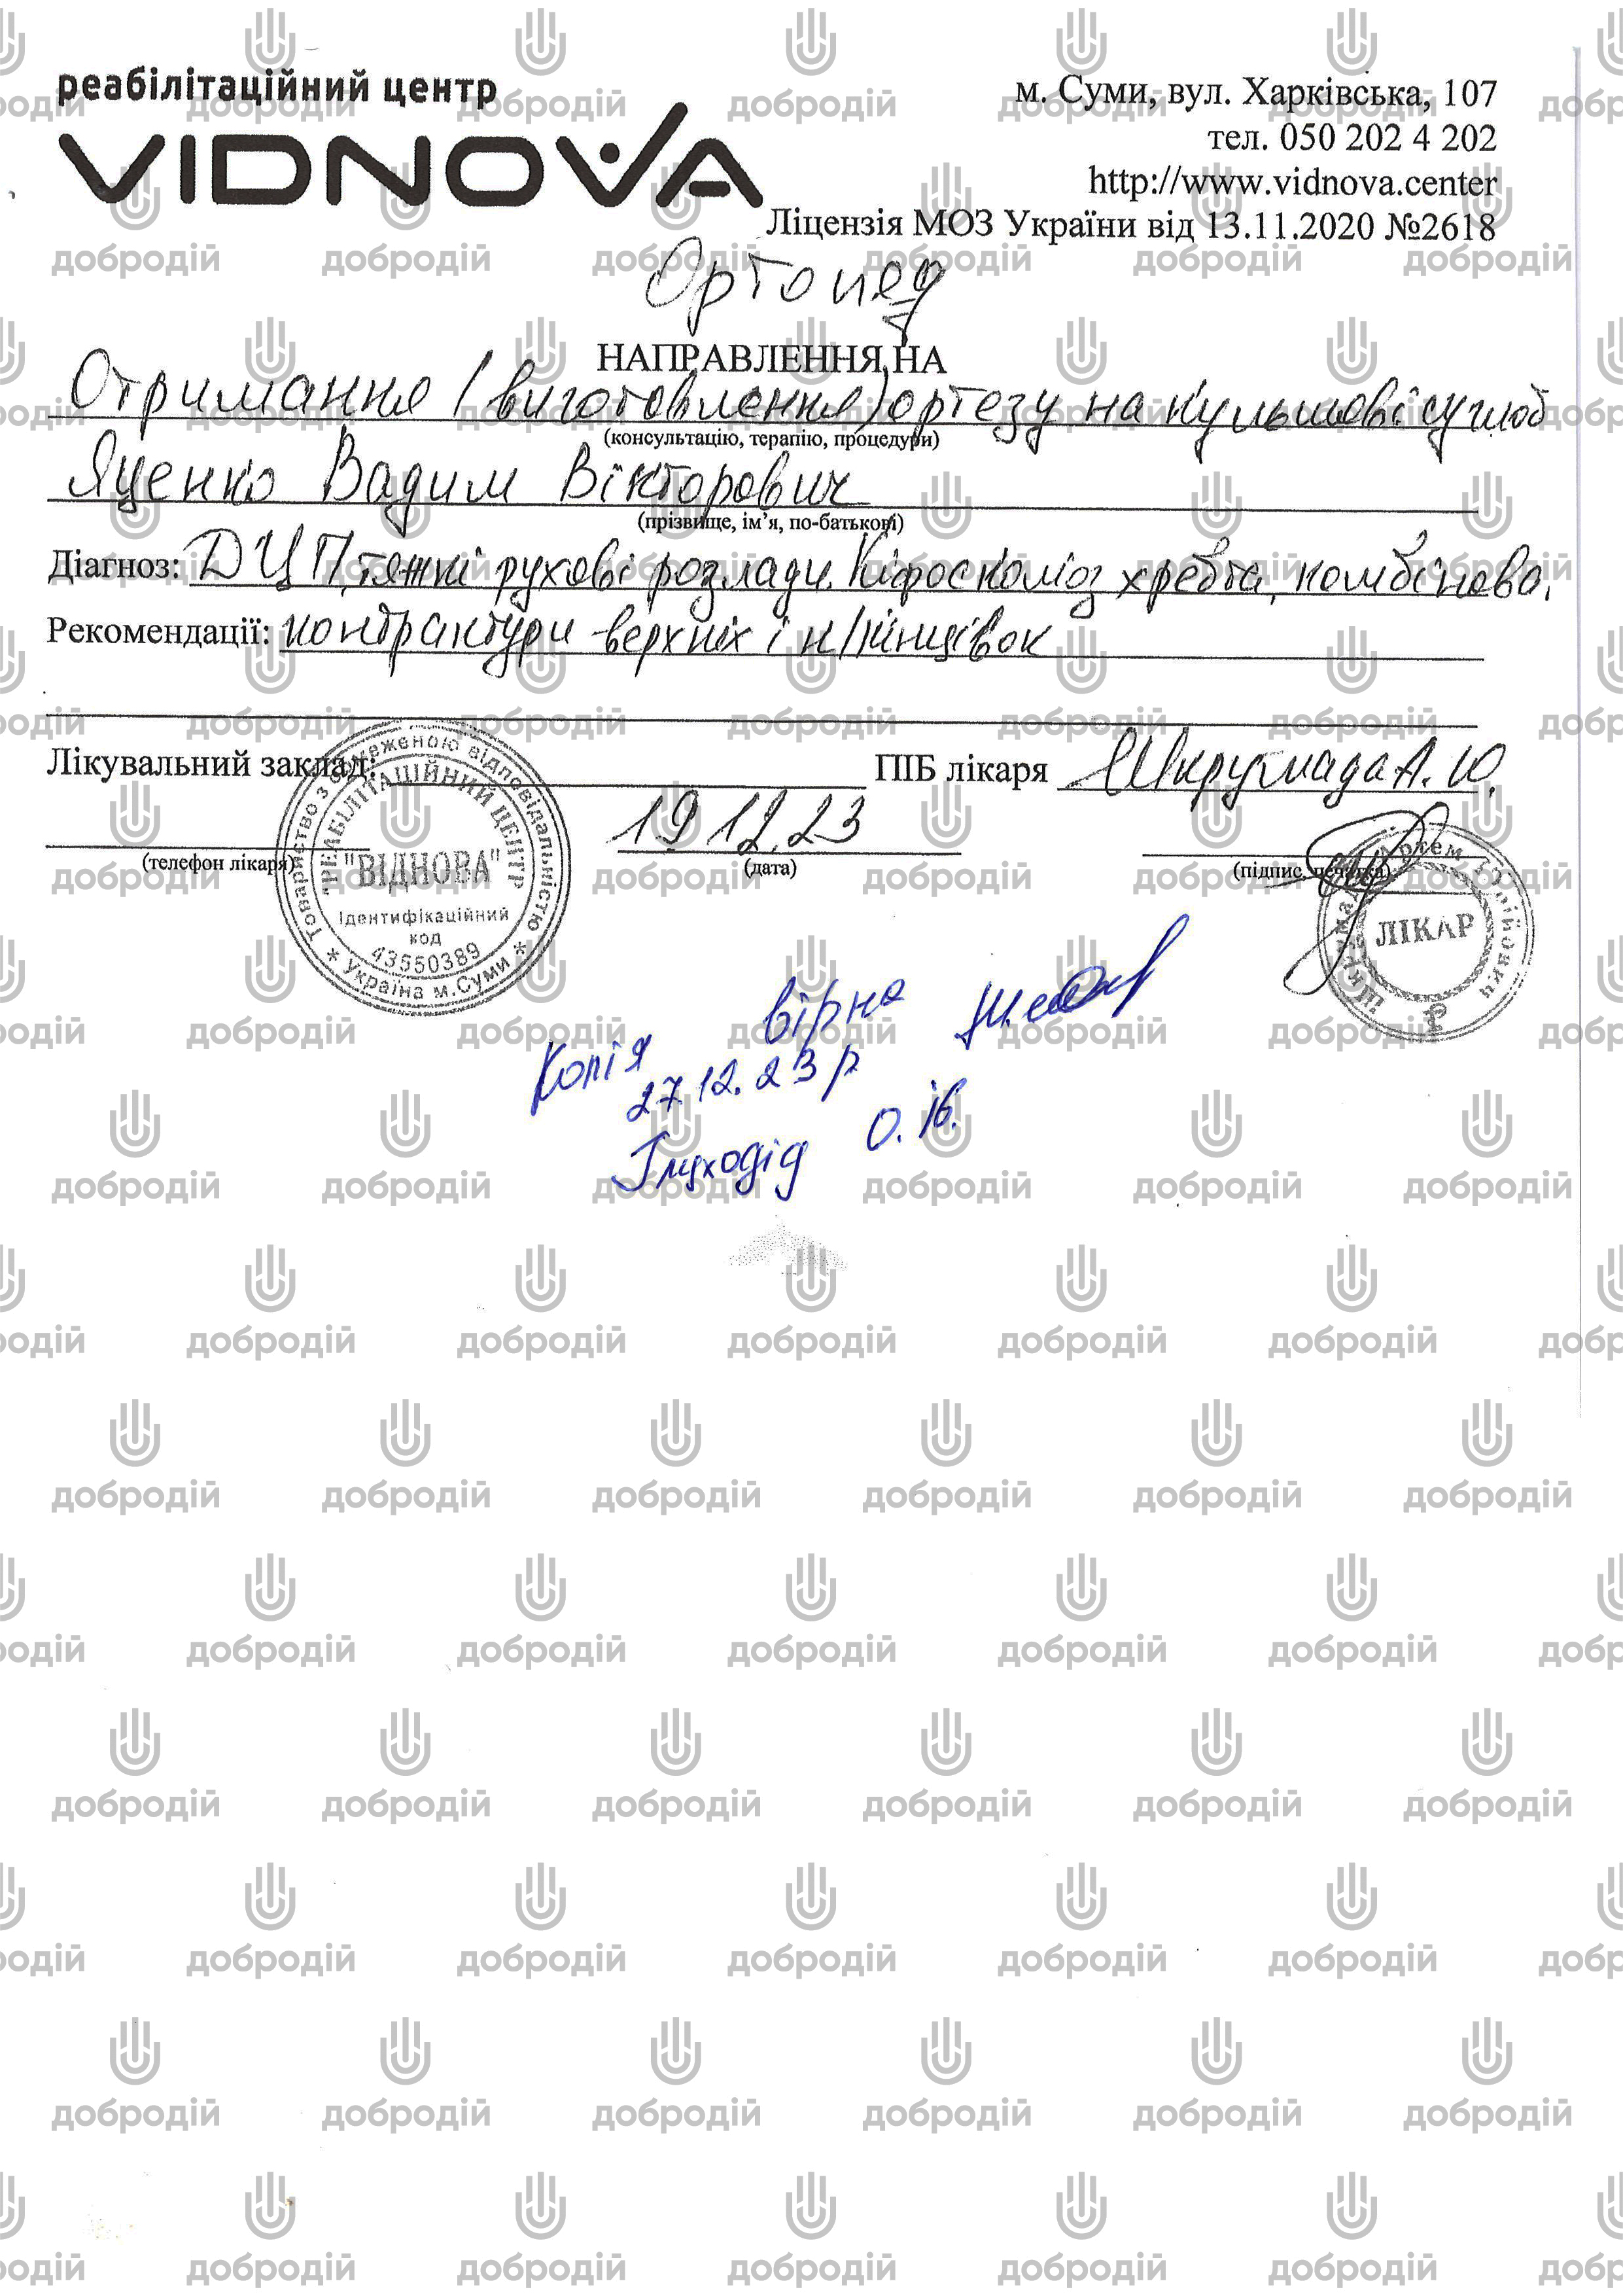 реабілітаційний центр
VIDNOVA
м. Суми, вул. Харківська, 107
тел. 050 202 4 202
http://www.vidnova.center
Ліцензія МОЗ України від 13.11.2020 №2618
Ортопед
НАПРАВЛЕННЯ НА
Отримання (виготовлення) ортезу на кульшові суглоб
(консультацію, терапію, процедури)
Яценко Вадим Вікторович
(прізвище, ім'я, по-батькові)
Діагноз: ДЦП, тяжкі рухові розлади. Кіфосколіоз хребта, комбінова.
Рекомендації: контрактури верхніх і н/кінцівок
Лікувальний заклад:
ПІБ лікаря Шкрумада А. Ю.
19.12.23
(телефон лікаря)
(дата)
(підпис, печатка)
Товариство з обмеженою відповідальністю
"РЕАБІЛІТАЦІЙНИЙ ЦЕНТР
"ВІДНОВА"
Ідентифікаційний
код
43550389
* Україна м.Суми *
ЛІКАР
Копія вірна
27.12.23 р
О. В.
добродій